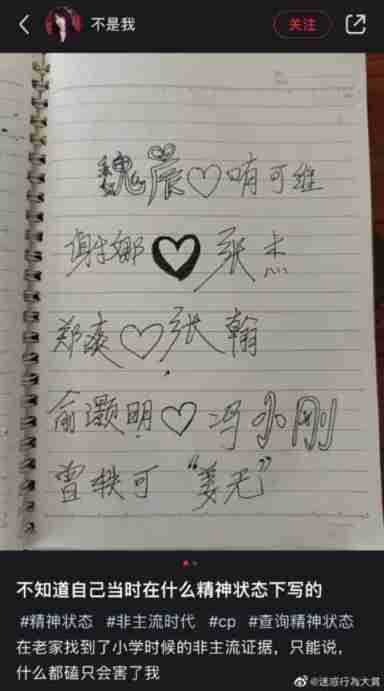 不是我
关注
魏晨♡哨可维
谢娜♥张杰
郑爽♡张翰
俞灏明♡冯小刚
曾轶可“姜无”
不知道自己当时在什么精神状态下写的
#精神状态 #非主流时代 #cp #查询精神状态
在老家找到了小学时候的非主流证据，只能说，
什么都磕只会害了我
@迷惑行為大賞